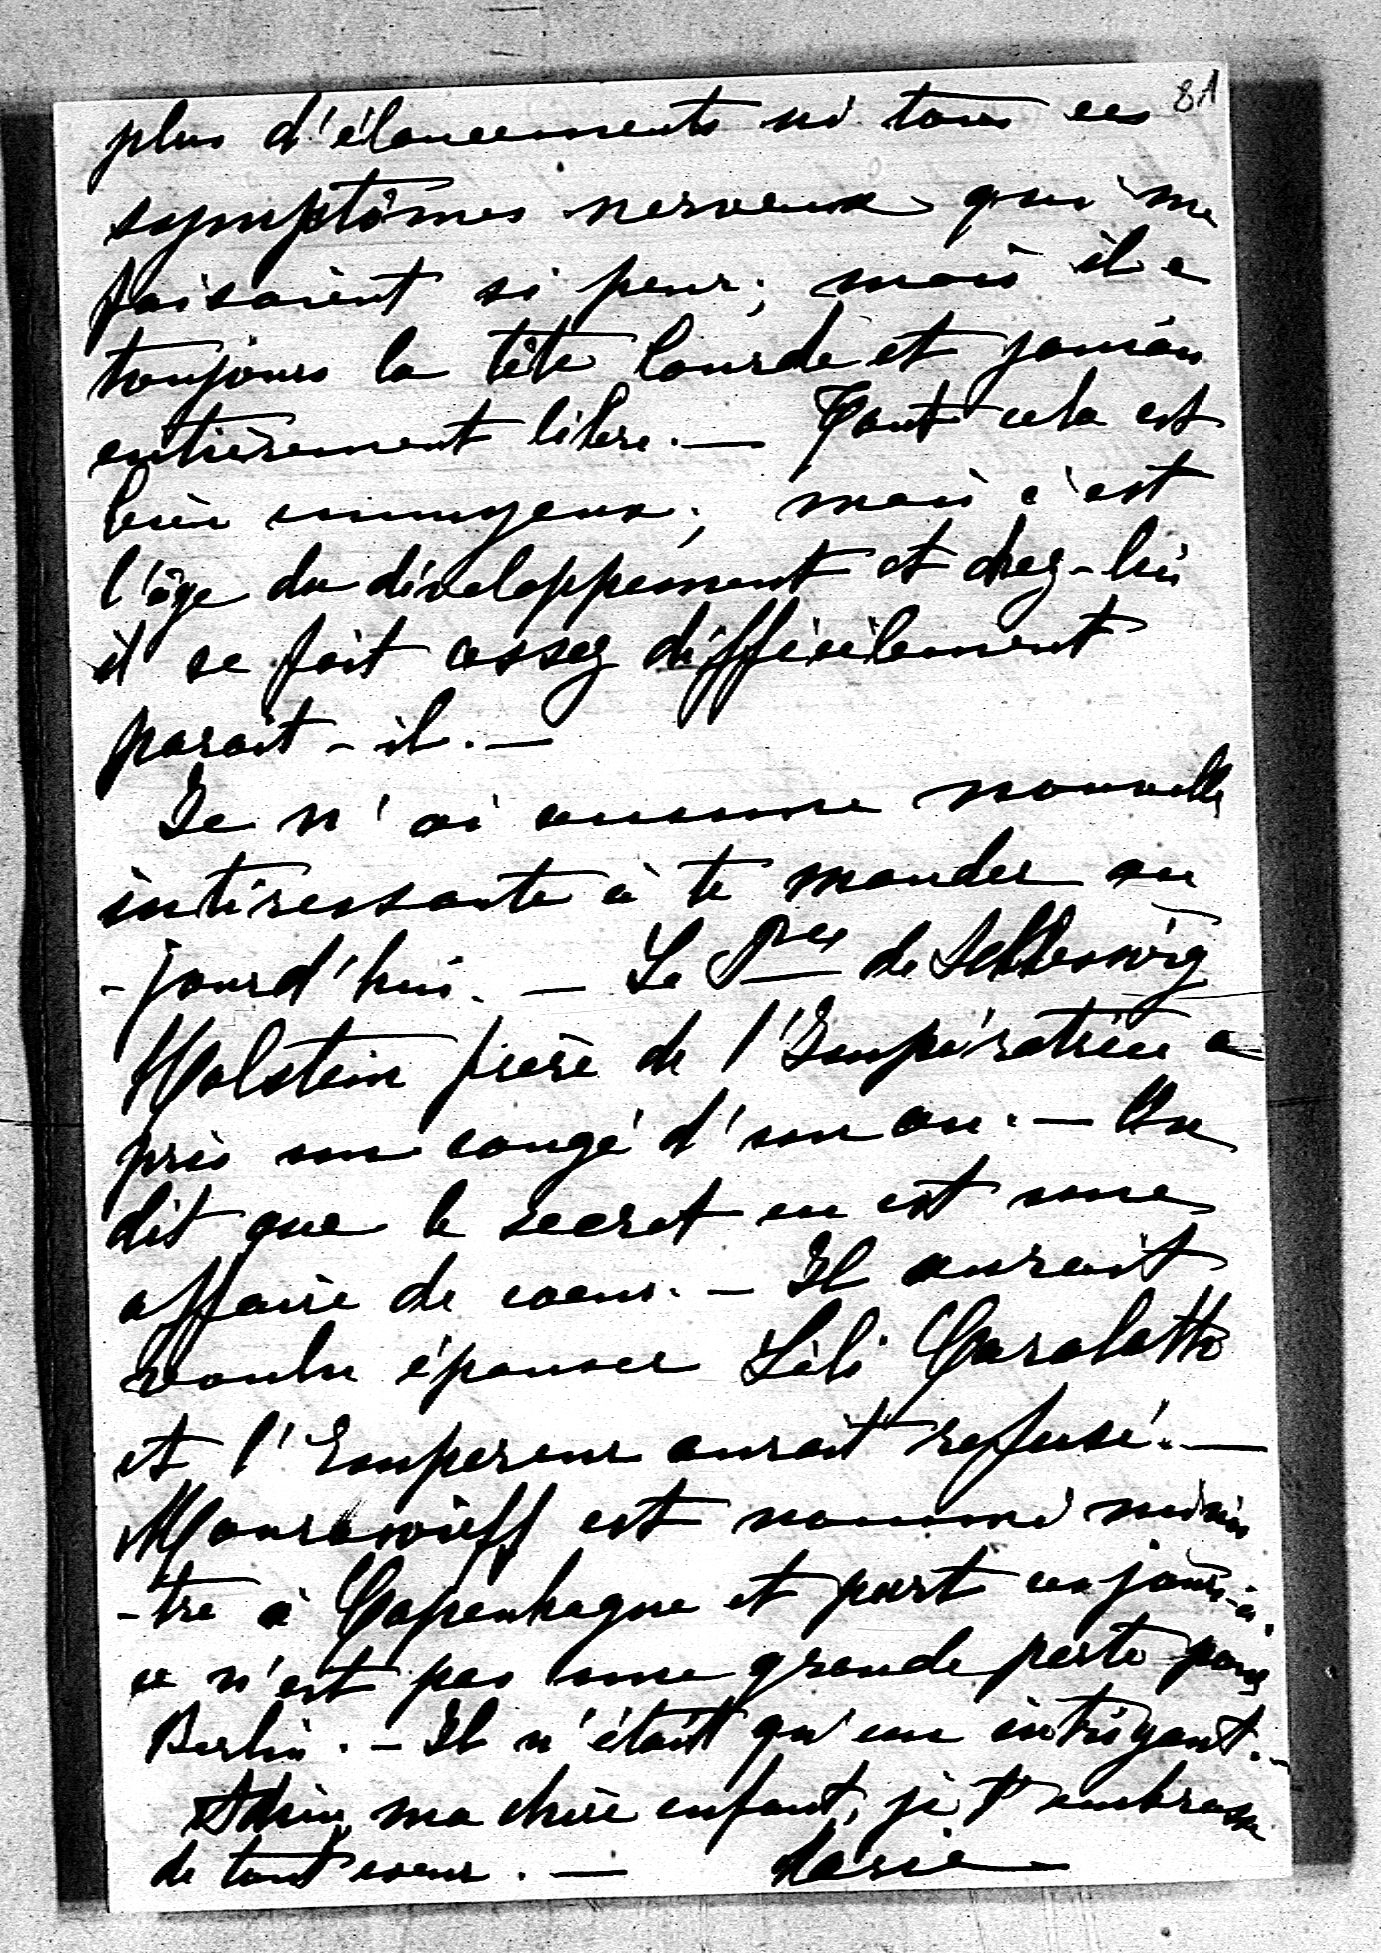 81
plus d'élancements ni tous ces
symptômes nerveux qui me
faisaient si peur; mais il a
toujours la tête lourde et jamais
entièrement libre. — Tout cela est
bien ennuyeux; mais c'est
l'âge du développement et chez-lui
il se fait assez difficilement
parait-il. —
Je n'ai aucune nouvelle
intéressante à te mander au
-jourd'hui. — Le Pce de Schleswig
Holstein frère de l'Impératrice a
pris un congé d'un an. — On
dit que le secret en est une
affaire de coeur. — Il aurait
voulu épouser Lili
et l'Empereur aurait refusé. —
Mourawieff est nommé minis
-tre à Copenhague et part ces jours-ci
ce n'est pas une grande perte pour
Berlin. — Il n'était qu'un intrigant. —
Adieu, ma chère enfant, je t'embrasse
de tout coeur. — Marie